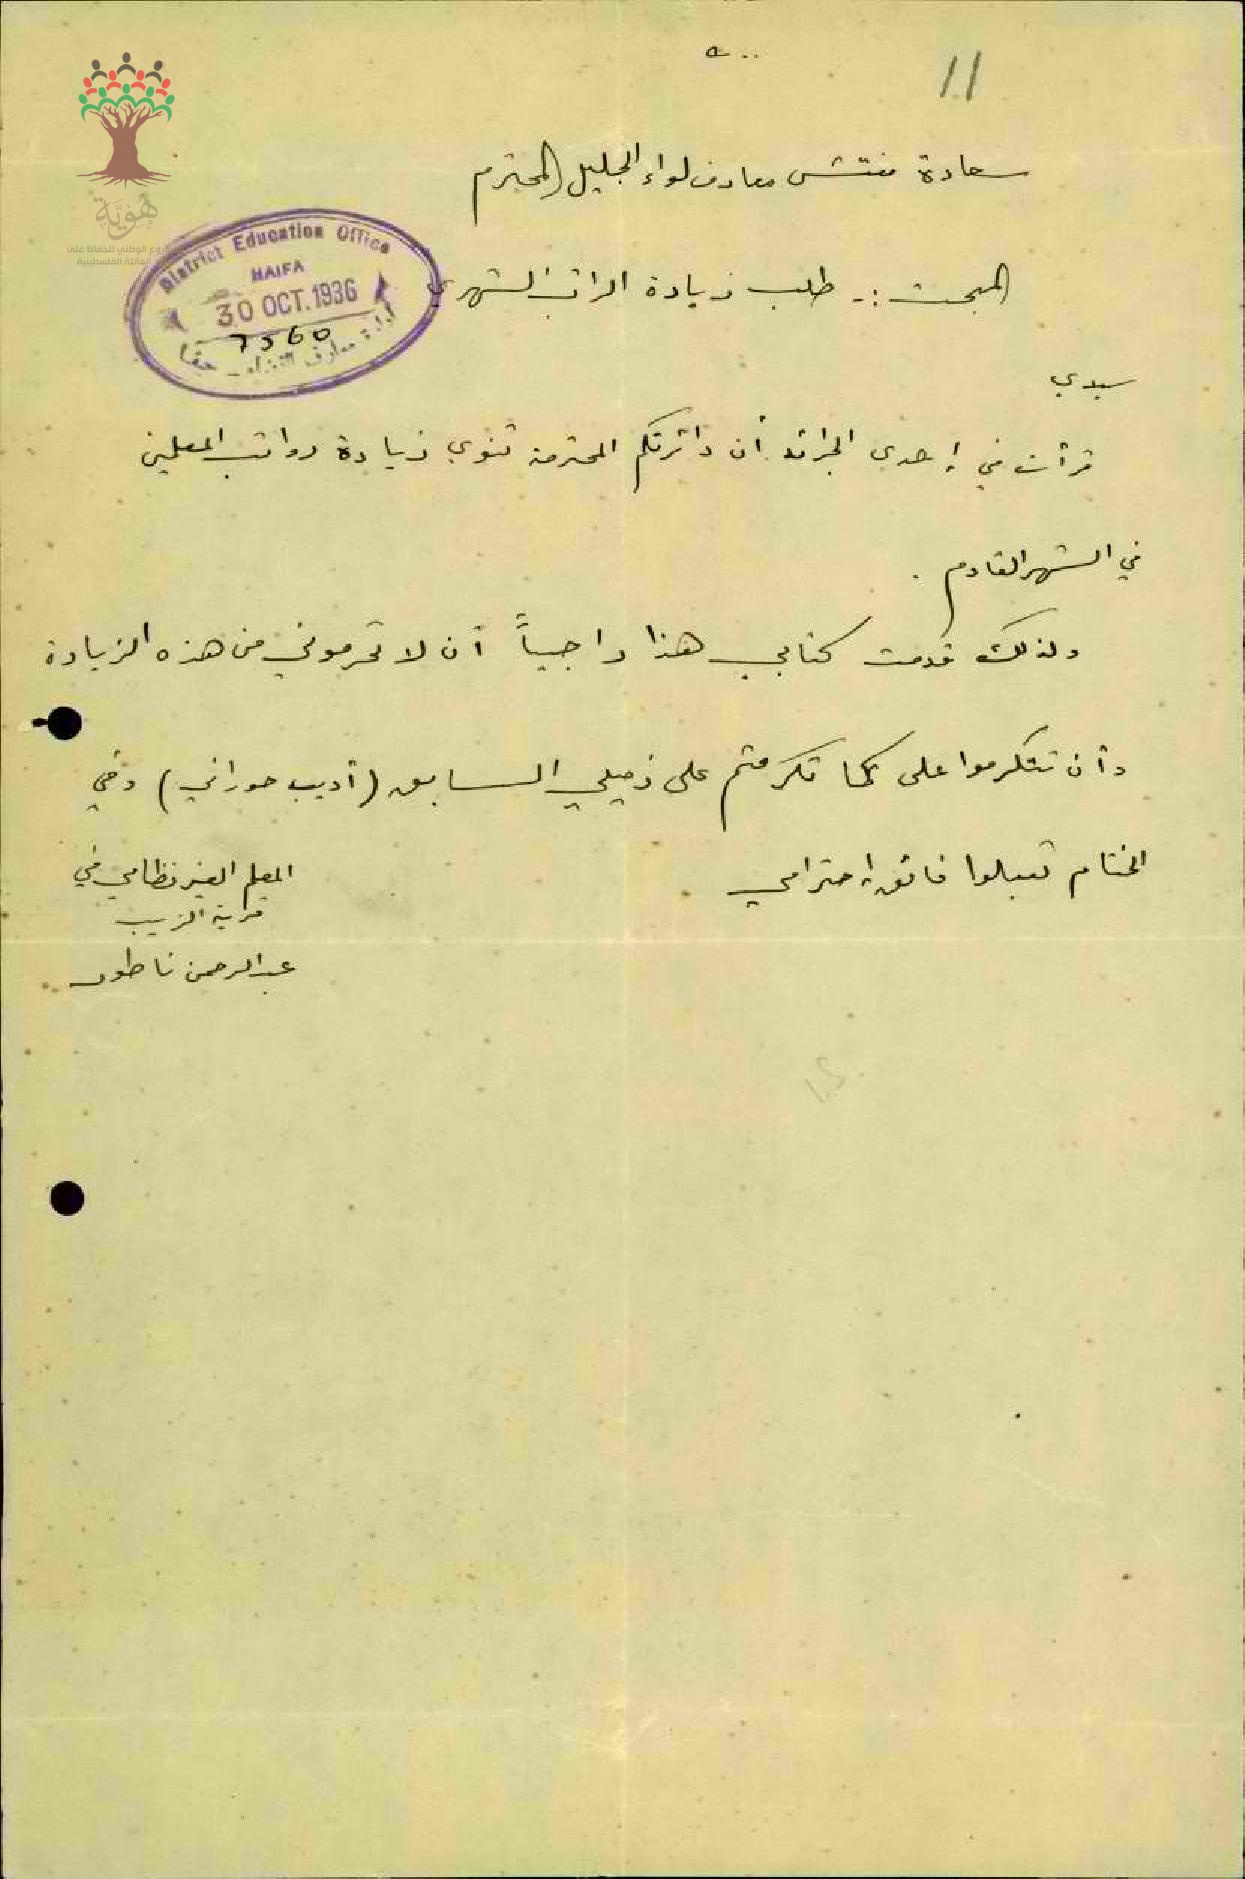 11
سعادة مفتش معارف لواء الجليل المحترم
هوية
District Education Office
HAIFA
30 OCT. 1936
7560
المبحث :- طلب زيادة الراتب الشهري
سيدي
قرأت في إحدى الجرائد أن دائرتكم المحترمة تنوي زيادة رواتب المعلمين
في الشهر القادم .
ولذلك قدمت كتابي هذا راجياً أن لا تحرموني من هذه الزيادة
وأن تتكرموا على كما تكرمتم على زميلي السابق (أديب حوراني) وفي
الختام تقبلوا فائق احترامي
المعلم الغير نظامي في
قرية الزيب
عبد الرحمن ناطور